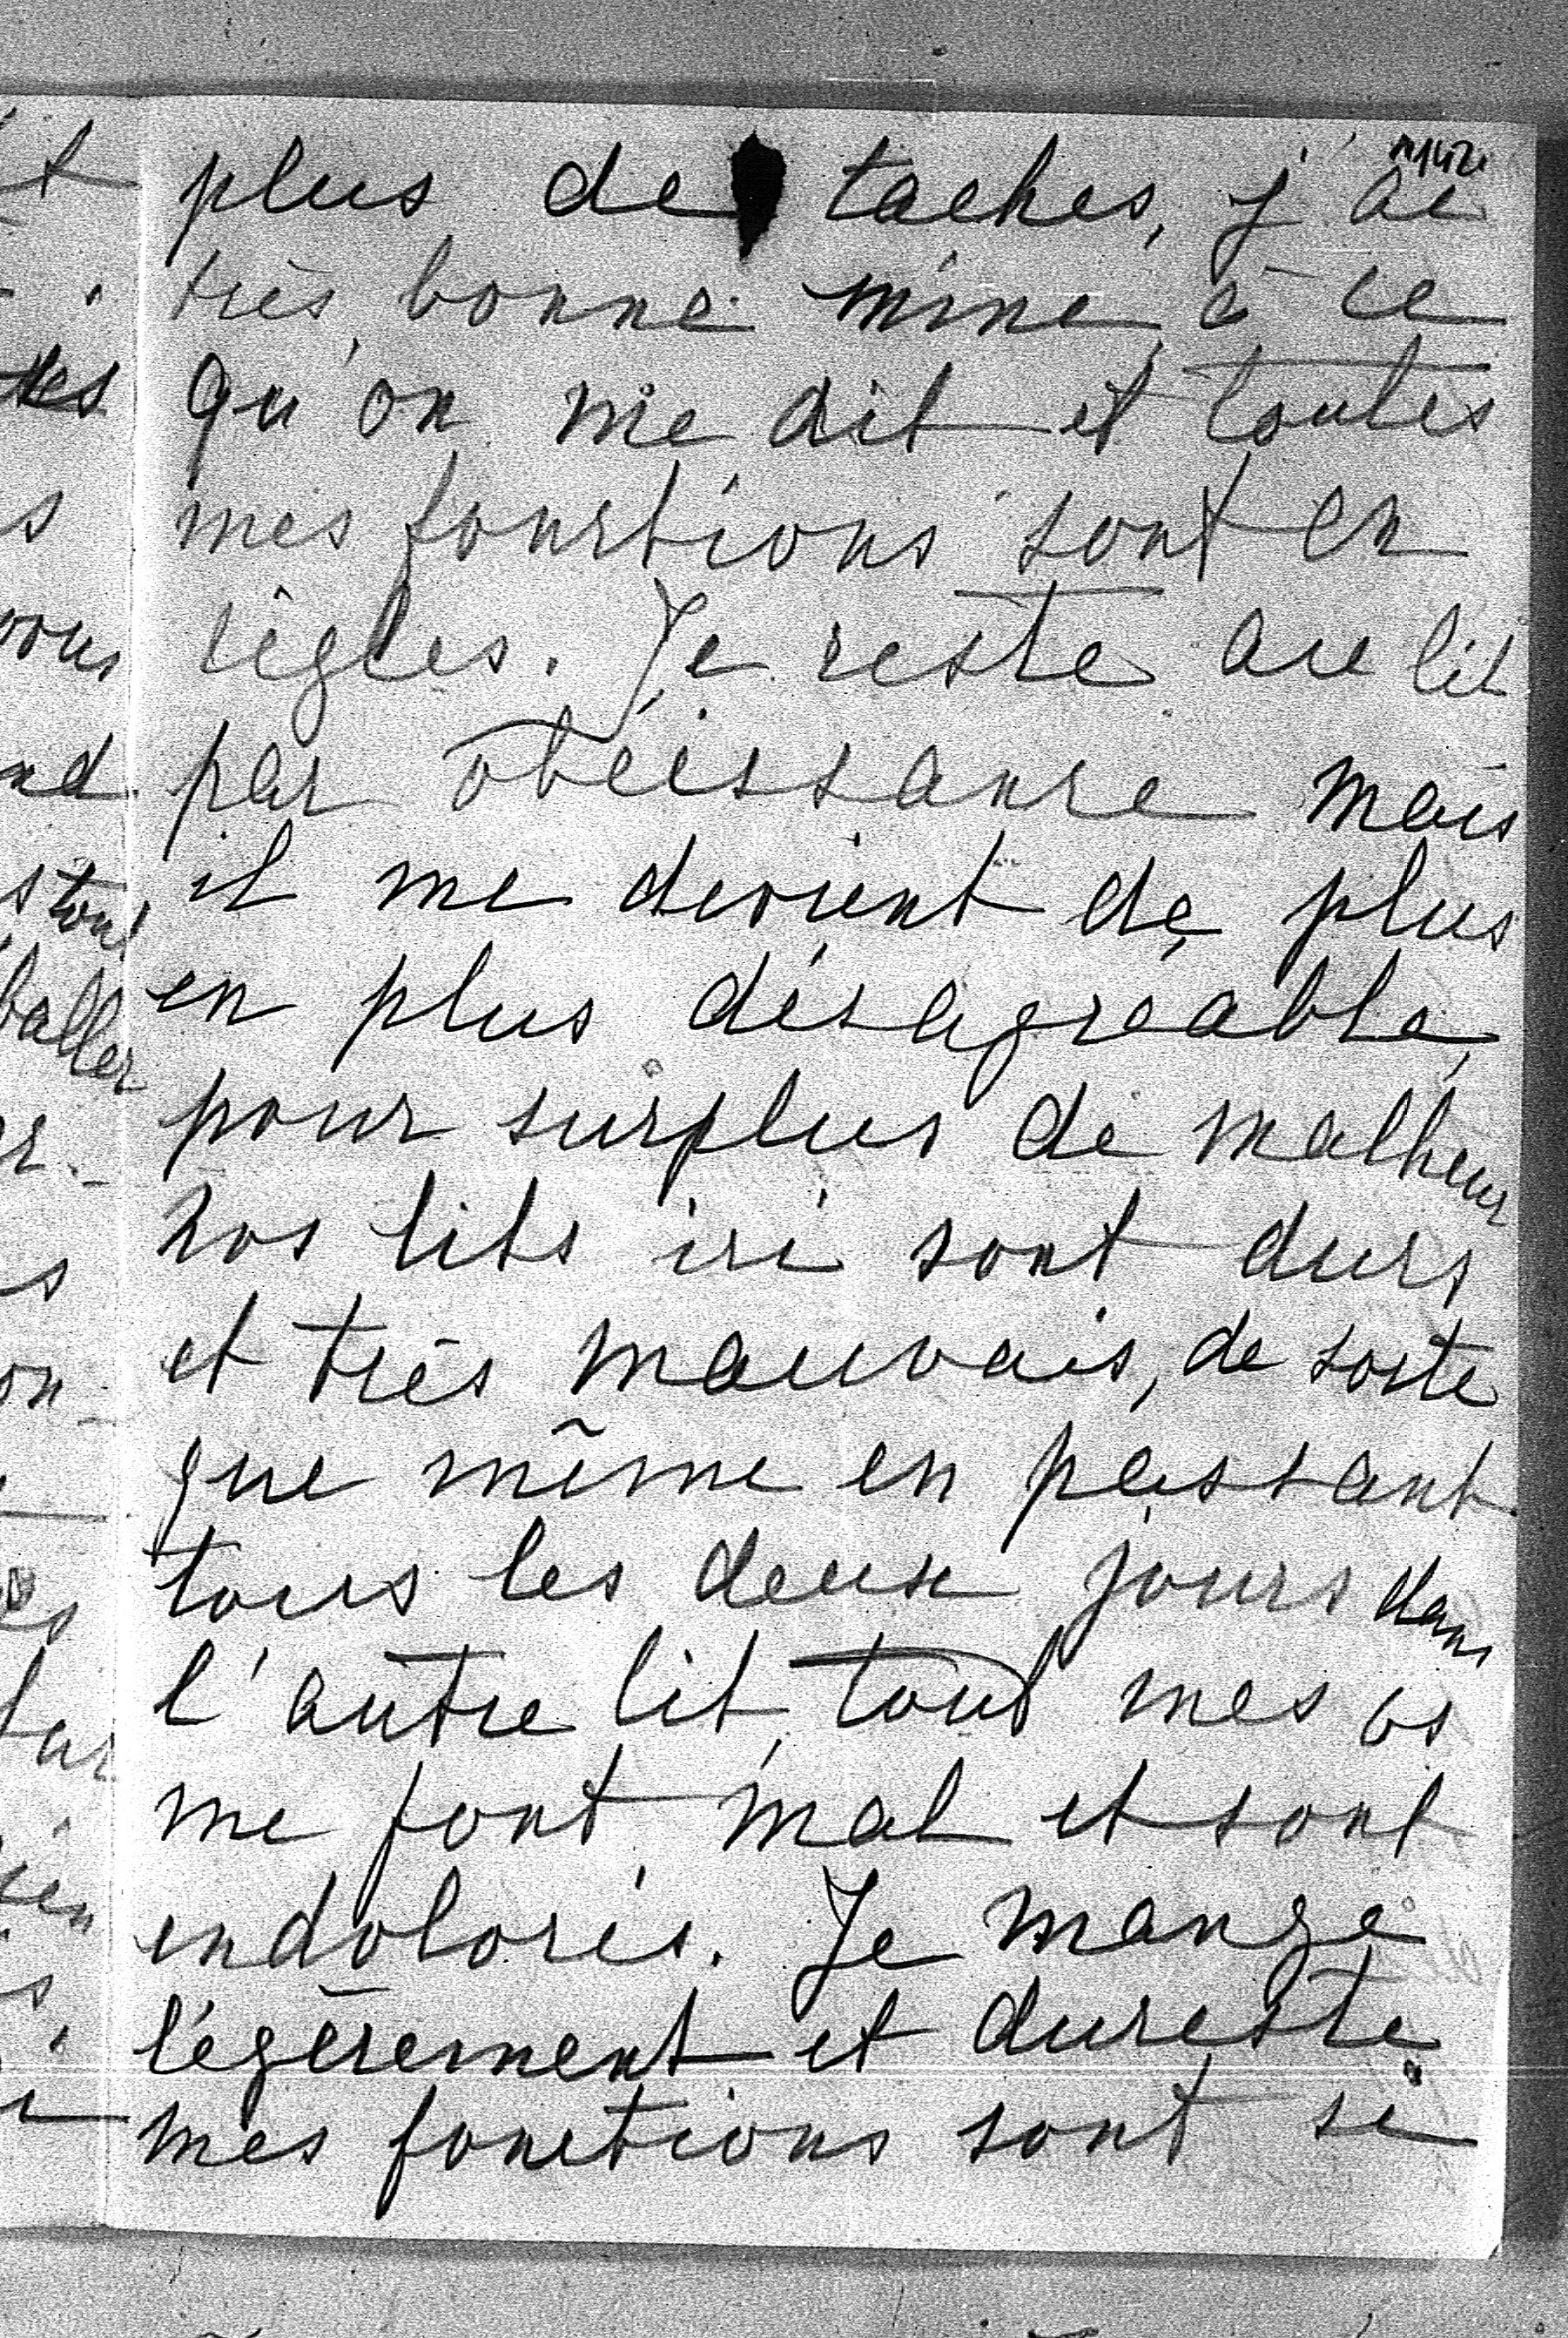 plus de taches, j'ai
très bonne mine à ce
qu'on me dit et toutes
mes fonctions sont en
règles. Je reste au lit
par obéissance mais
il me devient de plus
en plus désagréable,
pour surplus de malheur
nos lits ici sont durs
et très mauvais, de sorte
que même en passant
tous les deux jours dans
l'autre lit, tout mes os
me font mal et sont
endoloris. Je mange
légèrement et dureste
mes fonctions sont si